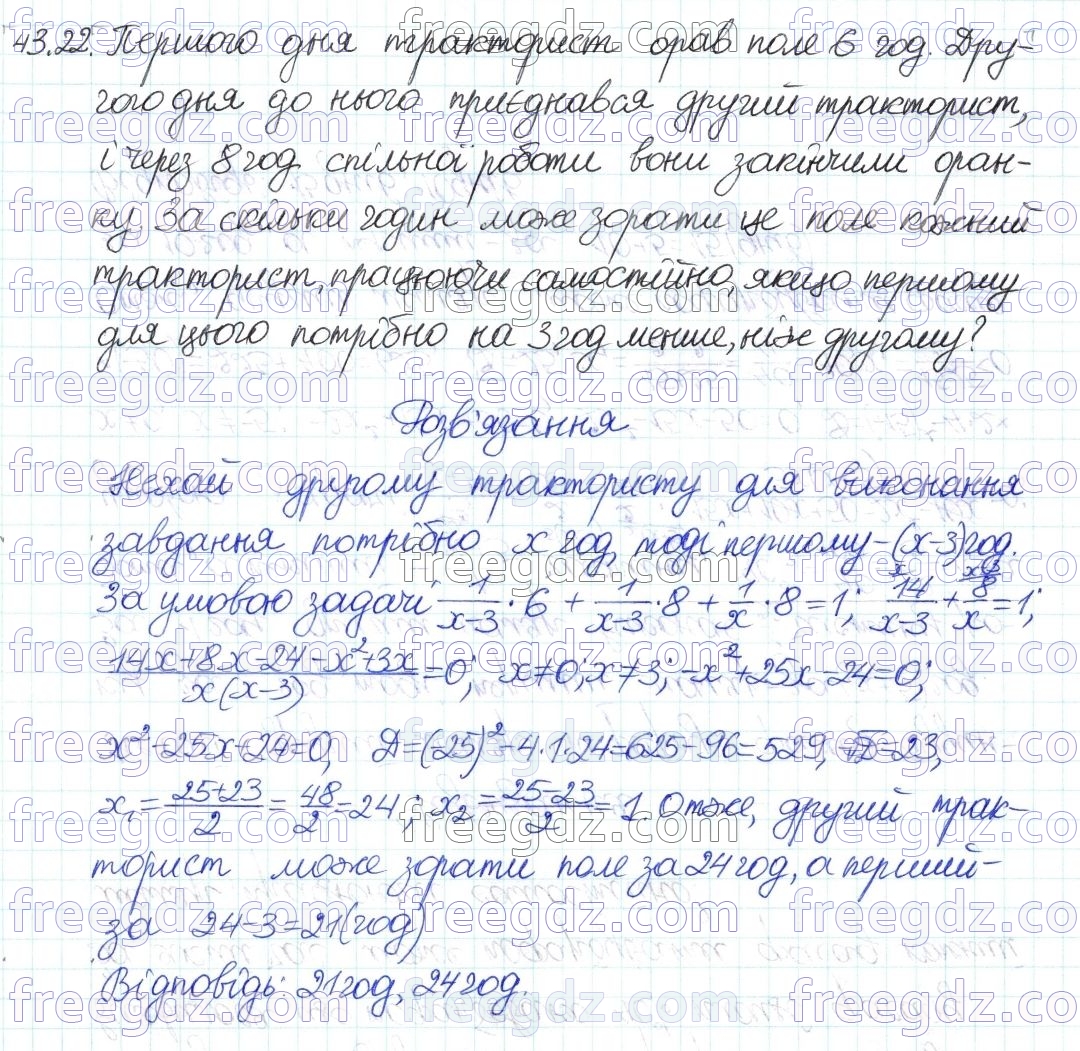 43.22. Першого дня тракторист орав поле 6 год. Дру-
гого дня до нього приєднався другий тракторист,
і через 8 год спільної роботи вони закінчили оран-
ку. За скільки годин може зорати це поле кожний
тракторист, працюючи самостійно, якщо першому
для цього потрібно на 3 год менше, ніж другому?
Розв'язання
Нехай другому трактористу для виконання
завдання потрібно x год, тоді першому - (x-3) год.
За умовою задачі: 1/(x-3) · 6 + 1/(x-3) · 8 + 1/x · 8 = 1; 14/(x-3) + 8/x = 1;
(14x+8x-24-x²+3x)/(x(x-3)) = 0; x≠0; x≠3; -x²+25x-24=0;
x²-25x+24=0, D=(-25)²-4·1·24=625-96=529, √D=23,
x₁ = (25+23)/2 = 48/2 = 24; x₂ = (25-23)/2 = 1. Отже, другий трак-
торист може зорати поле за 24 год, а перший -
за 24-3=21 (год)
Відповідь: 21 год, 24 год.
freegdz.com